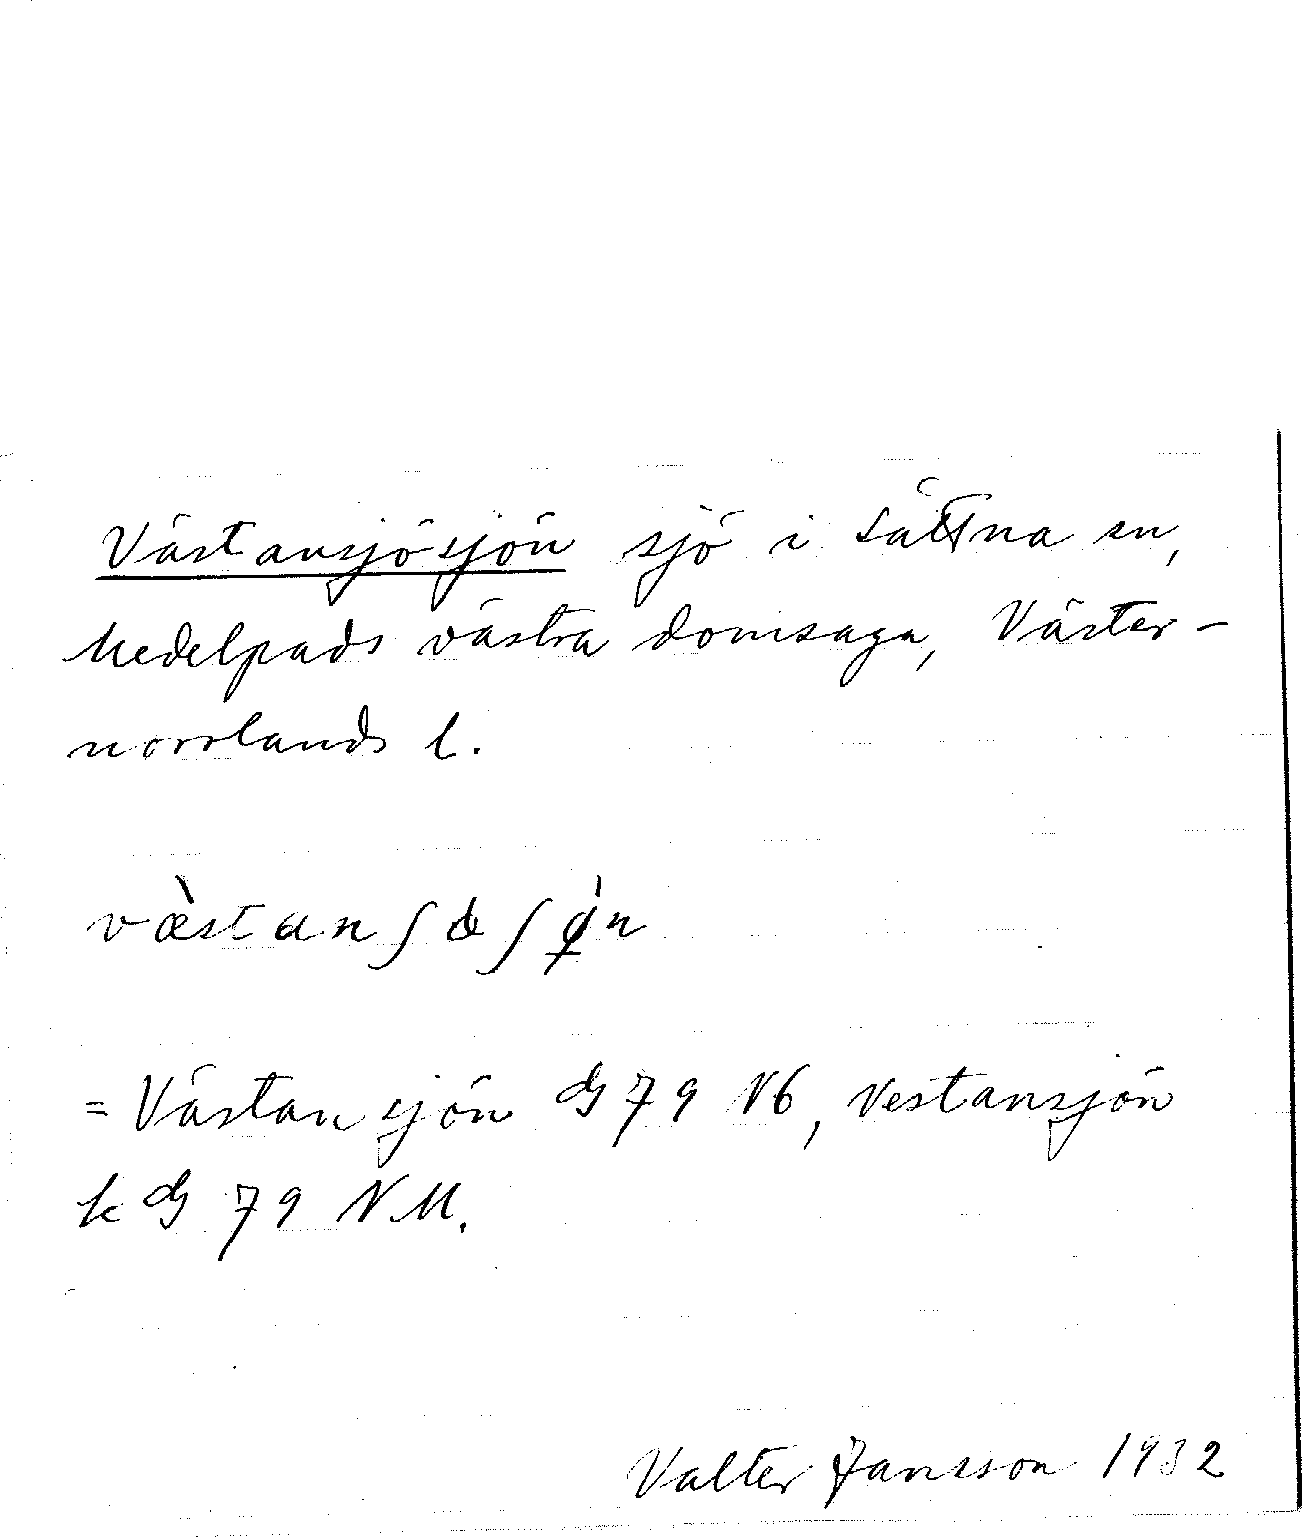 Västansjösjön sjö i Sättna sn,
Medelpads västra domsaga, Väster-
norrlands l.
væ̀stanʃøʃø̀n
= Västansjön GS 79 N6, Vestansjön
k GS 79 NM.
Valter Jansson 1932